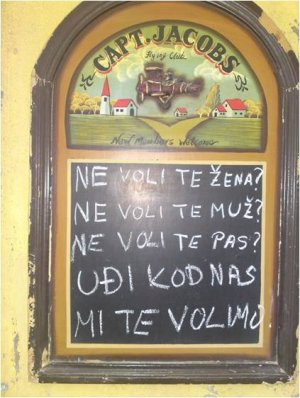 CAPT. JACOBS
Flying Club
New Members Welcome
NE VOLI TE ŽENA?
NE VOLI TE MUŽ?
NE VOLI TE PAS?
UĐI KOD NAS
MI TE VOLIMO